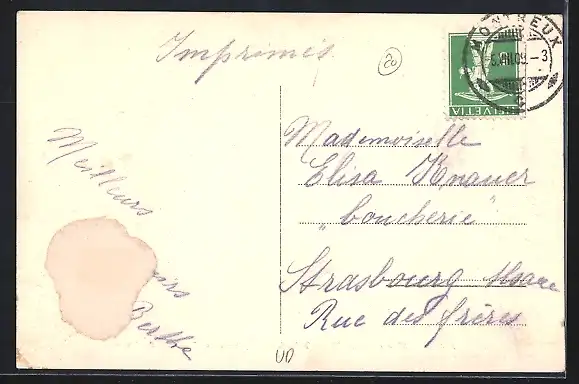 Imprimés
20
MONTREUX
HELVETIA
Meilleurs
Berthe
Mademoiselle
Elisa Knauer
"boucherie"
Strasbourg Alsace
Rue des frères
UD